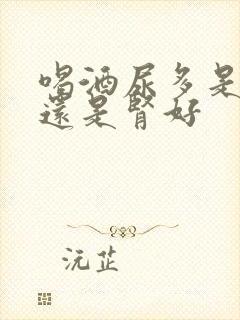 喝酒尿多是
還是腎好
沅芷